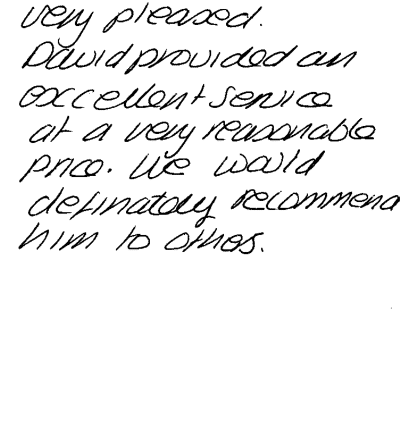 very pleased.
David provided an
excellent service
at a very reasonable
price. We would
definately recommend
him to others.